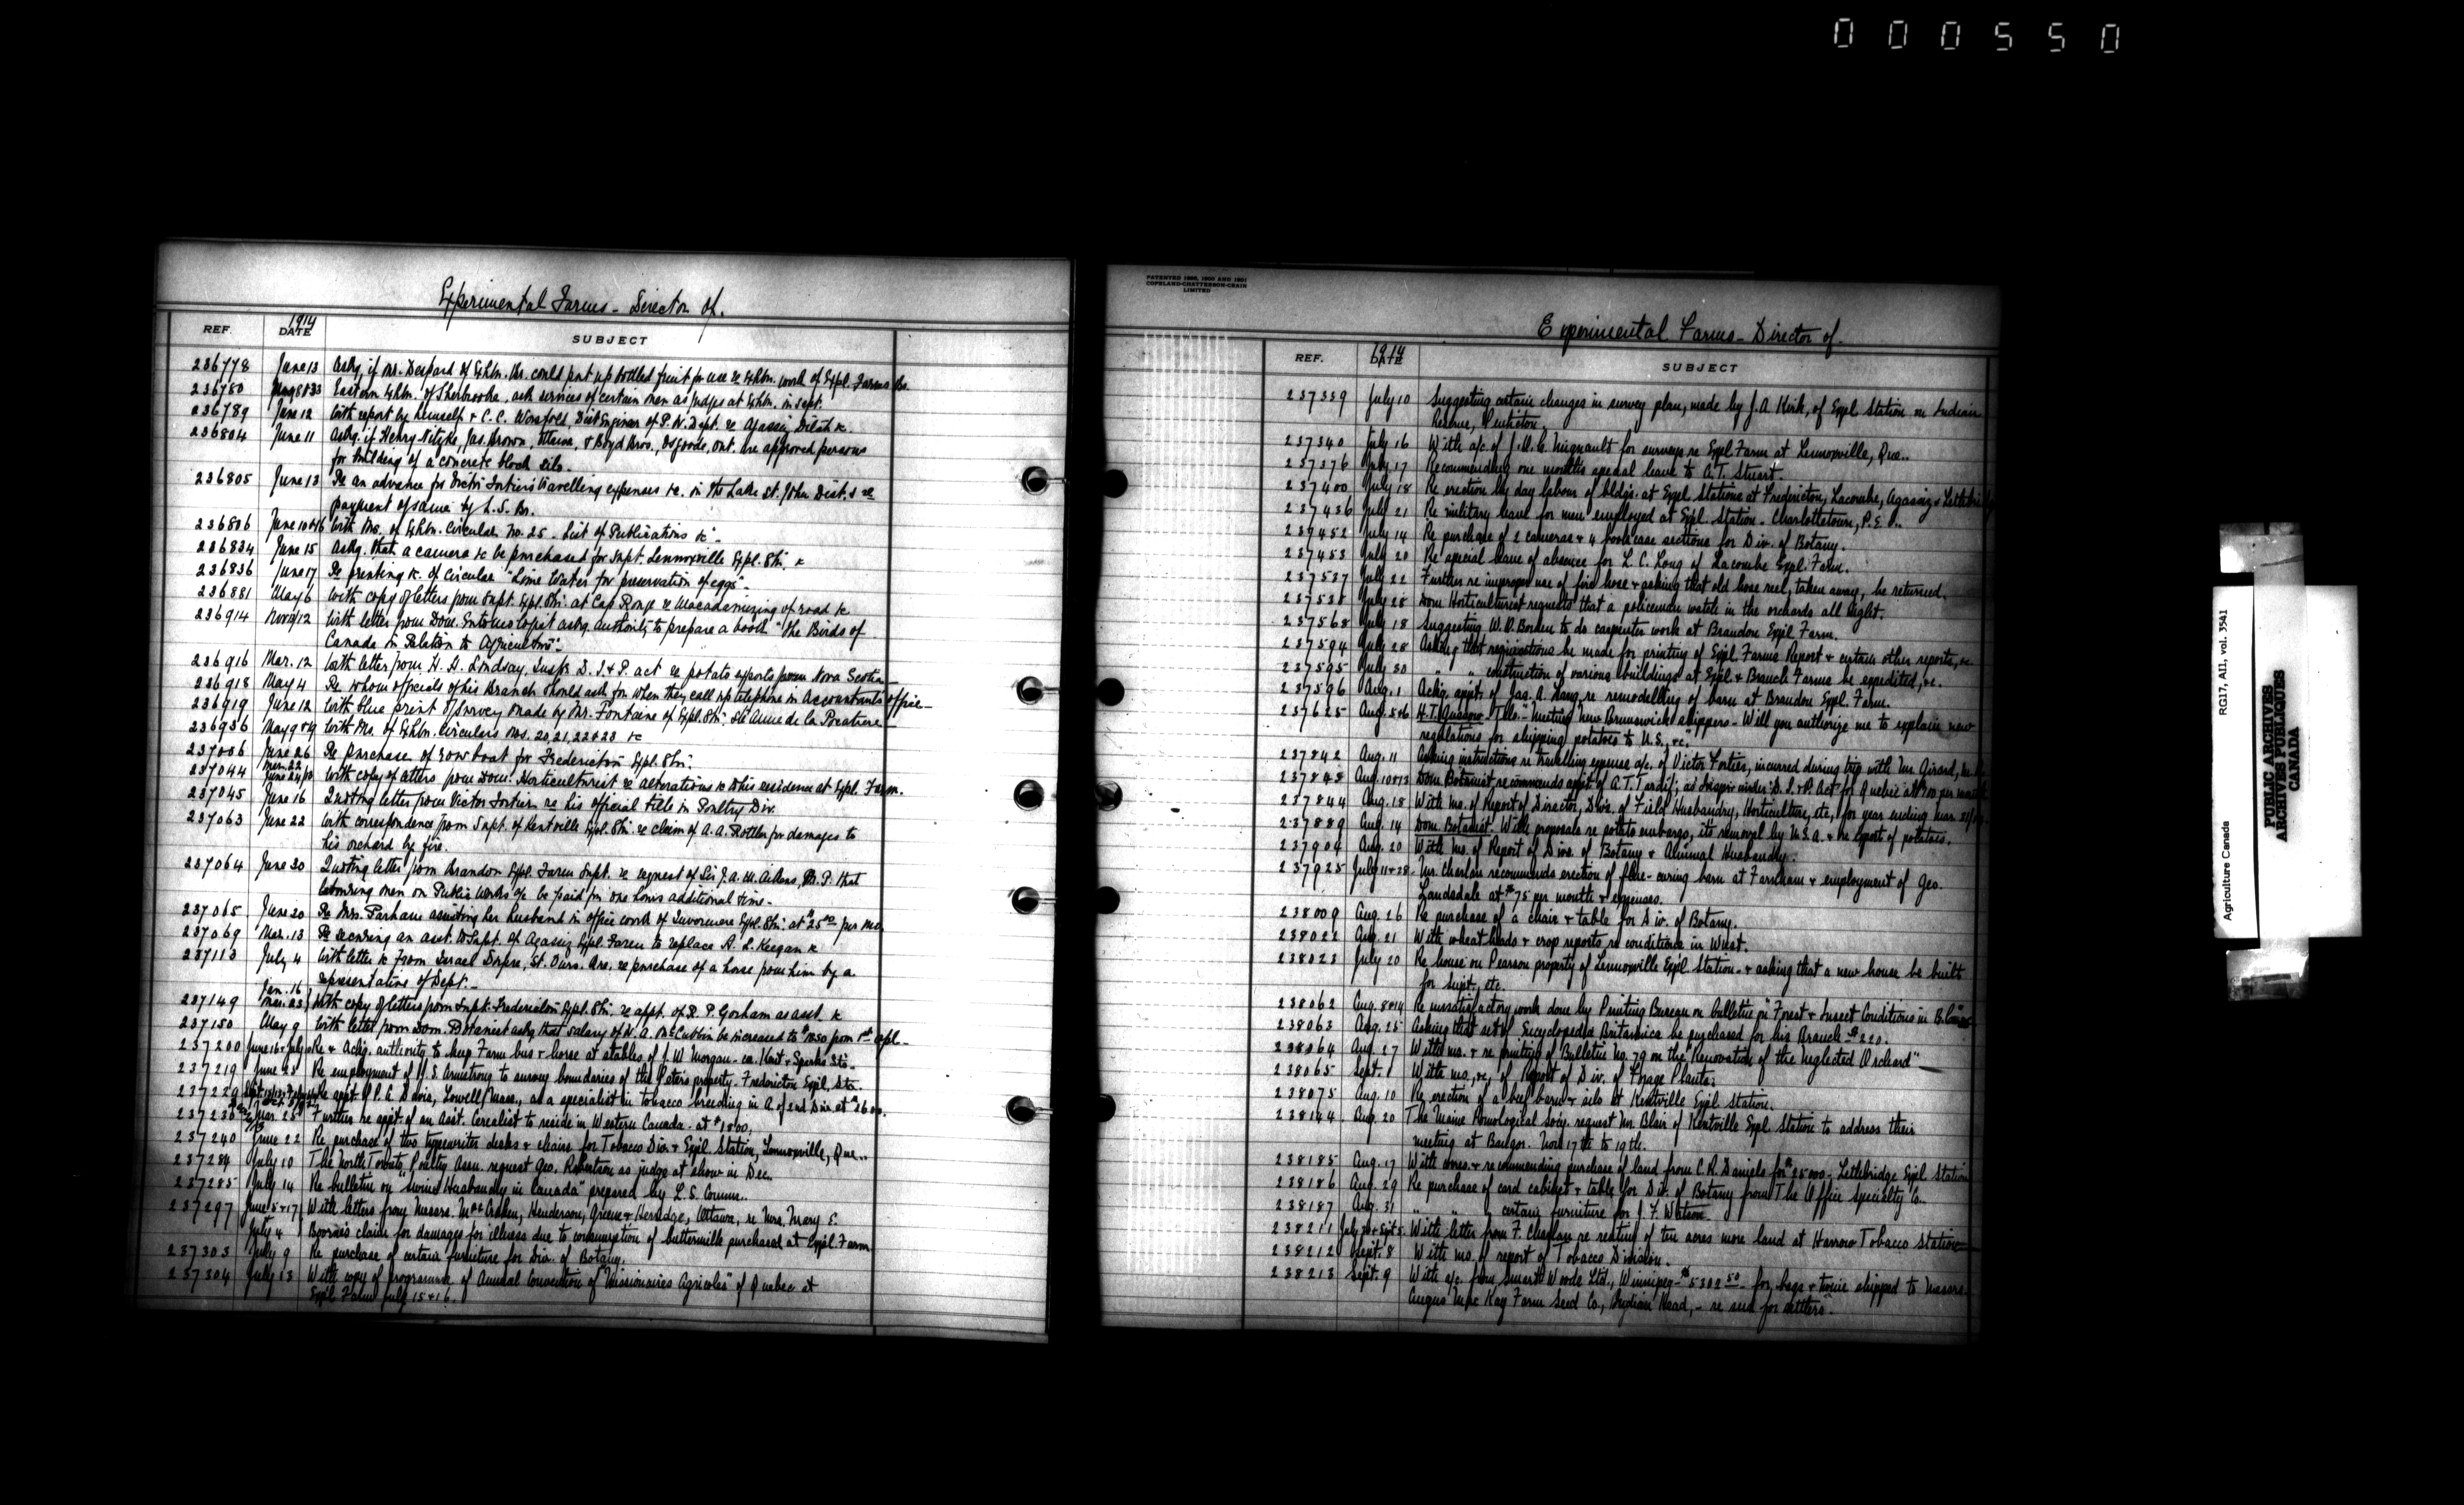 000550
Experimental Farms - Director of.
REF. 1914 DATE SUBJECT
236778 June 13 Askg. if Mr. Despard of Exhbn. Br. could put up bottled fruit for use re Exhbn. work of Expl. Farms Br.
236780 Eastern Exhbn. of Sherbrooke, ask services of certain men as judges at Exhbn. in Sept.
236789 June 12 With report by himself & C.C. Worsfold, Dist Engineer of P.W. Dept. re Agassiz Ditch &c
236804 June 11 Askg. if Henry Jas. Brown, Ottawa, & Boyd Bros., Osgoode, Ont. are approved persons
for building of a concrete block silo.
236805 June 13 Re an advance for Victor Fortier's travelling expenses &c. in the Lake St. John Dist. & re
payment of same by L.S. Br.
236806 With Mo. of Exhbn. Circular No. 25 - List of Publications &c -
236834 June 15 Askg. that a camera &c be purchased for Supt. Lennoxville Expl. Stn. &c
236836 June 17 Re printing &c. of Circular "Lime Water for preservation of eggs" -
236881 May 6 With copy of letters from Supt. Expl. Stn. at Cap Rouge re Macadamizing of road &c
236914 Nov 11/12 With letter from Dom. Entomologist askg. authority to prepare a book "The Birds of
Canada in Relation to Agriculture" -
236916 Mar. 12 With letter from H. H. Lindsay, Inspr. D. I. & P. act re potato exports from Nova Scotia -
236918 May 4 Re whom officials of his Branch should ask for when they call up telephone in Accountants office -
236919 June 12 With blue print of survey made by Mr. Fontaine of Expl. Stn. Ste Anne de la Pocatiere
236936 May 9 & 19 With Mo. of Exhbn. Circulars Nos. 20, 21, 22 & 23 &c
237006 June 26 Re Purchase of row boat for Fredericton Expl. Stn.
237044 Mar. 22 June 24/13 With copy of letters from Dom. Horticulturist re alterations to his residence at Expl. Farm.
237045 June 16 Quoting letter from Victor Fortier re his official title in Poultry Div.
237063 June 22 With correspondence from Supt. of Kentville Expl. Stn. re claim of A. A. Rottler for damages to
his orchard by fire.
237064 June 30 Quoting letter from Brandon Expl. Farm Supt. re request of Sir J. A. M. Aikins, M.P. that
labouring men on Public Works &c be paid for one hours additional time -
237065 June 20 Re Mrs. Parham assisting her husband in office work of Invermere Expl. Stn. at $25.00 per mo.
237069 Mar. 13 Re securing an asst. to Supt. of Agassiz Expl. Farm to replace A. L. Keegan &c
237113 July 4 With letter &c from Israel St. Ours, Que. re purchase of a horse from him by a
representative of Dept. -
237149 Jan. 16 Mar. 23 With copy of letters from Supt. Fredericton Expl. Stn. re appt. of R. P. Gorham as asst. &c
237150 May 9 With letter from Dom. Botanist askg. that salary of W. A. McCubbin be increased to $1650 from 1st Apl. -
237200 Re & Askg. authority to keep Farm bus & horse at stables of J. W. Morgan - cor. Kent & Sparks Sts.
237219 June 25 Re employment of H. S. Armstrong to survey boundaries of the Peters property. Fredericton Expl. Stn.
237229 Re appt. of P. G. Davis, Lowell, Mass., as a specialist in tobacco breeding in A of 2nd Div. at $1600.
237236 Mar. 25 Further re appt. of an Asst. Cerealist to reside in Western Canada - at $1800.
237240 June 22 Re purchase of two typewriter desks & chairs for Tobacco Div. & Expl. Station, Lennoxville, Que..
237284 July 10 The North Toronto Poultry Assn. request Geo. Robertson as judge at show in Dec.
237285 July 14 Re bulletin on "Swine Husbandry in Canada" prepared by L. S. Commr.
237297 June 15 & 17, With letters from Messrs. McCracken, Henderson, Greene & Herridge, Ottawa, re Mrs. Mary E.
July 4 claim for damages for illness due to consumption of buttermilk purchased at Expl. Farm
237303 July 9 Re purchase of certain furniture for Div. of Botany.
237304 July 13 With copy of programme of Annual Convention of "Missionaires Agricoles" of Quebec at
Expl. Farm July 15 & 16.
PATENTED 1898, 1900 AND 1901
COPELAND-CHATTERSON-CRAIN
LIMITED
Experimental Farms - Director of.
REF. 1914 DATE SUBJECT
237339 July 10 Suggesting certain changes in survey plan, made by J. A. Kirk, of Expl Station on Indian
Reserve, Penticton.
237340 July 16 With a/c. of J. U. E. Mignault for surveys re Expl Farm at Lennoxville, Que..
237376 July 17 Recommending one months special leave to A. T. Stuart.
237400 July 18 Re erection by day labour of bldgs. at Expl Stations at Fredericton, Lacombe, Agassiz &
237436 July 21 Re military leave for men employed at Expl. Station - Charlottetown, P.E.I..
237452 July 14 Re purchase of 2 cameras & 4 book case sections for Div. of Botany.
237453 July 20 Re special leave of absence for L. C. Long of Lacombe Expl Farm.
237537 July 22 Further re improper use of fire hose & asking that old hose reel, taken away, be returned.
237538 July 28 Dom Horticulturist requests that a policeman watch in the orchards all Night.
237568 July 18 Suggesting W. D. Borden to do carpenter work at Brandon Expl Farm.
237594 July 28 Asking that requisitions be made for printing of Expl Farms Report & certain other reports, &c
237595 July 30 " " construction of various buildings at Expl & Branch Farms be expedited, &c.
237596 Aug. 1 Askg. appt. of Jas. A. Lang re remodelling of barn at Brandon Expl. Farm.
237625 Aug. 5 & 6 H. T. Gussow - Tels. - "Meeting New Brunswick shippers - Will you authorize me to explain new
regulations for shipping potatoes to U.S., &c."
237842 Aug. 11 Asking instructions re travelling expense a/c. of Victor Fortier, incurred during trip with Mr. Girard,
237843 Aug. 10 & 13 Dom Botanist, recommends appt. of A. T. Tardif, as Inspr under D. I. & P. Act for Quebec at
237844 Aug. 18 With mo. of Report of Director, Divs. of Field Husbandry, Horticulture, etc, for year ending Mar. 31/
237889 Aug. 14 Dom. Botanist. With proposals re potato embargo, its removal by U.S.A. & re export of potatoes.
237904 Aug. 20 With mo. of Report of Divs. of Botany & Animal Husbandry.
237925 July 11 & 28 - Mr. Charlan recommends erection of flue-curing barn at Farnham & employment of Geo.
Landsdale at $75 per month & expenses.
238009 Aug. 26 Re purchase of a chair & table for Div. of Botany.
238022 Aug. 21 With wheat heads & crop reports re conditions in West.
238023 July 20 Re house on Pearson property of Lennoxville Expl Station - & asking that a new house be built
for supt., etc.
238062 Aug. 8 & 14 Re unsatisfactory work done by Printing Bureau on bulletin on "Forest & Insect Conditions in B.C."
238063 Aug. 25 Asking that set of Encyclopedia Britannica be purchased for his Branch $220.
238064 Aug. 27 With mo. & re printing of Bulletin No. 79 on the "Renovation of the Neglected Orchard"
238065 Sept. 1 With mo., &c, of Report of Div. of Forage Plants.
238075 Aug. 10 Re erection of a beef barn & silo at Kentville Expl Station.
238144 Aug. 20 The Maine Pomological Socy. request Mr. Blair of Kentville Expl Station to address their
meeting at Bangor. Nov. 17th to 19th.
238185 Aug. 17 With & recommending purchase of land from C. R. Daniels for - Lethbridge Expl Station
238186 Aug. 29 Re purchase of card cabinet & table for Div. of Botany from The Office Specialty Co.
238187 Aug. 31 " " certain furniture for J. F. Watson.
238211 July 30 & Sept 5. With letter from F. Charlan re renting of ten acres more land at Harrow Tobacco Station
238212 Sept. 8 With mo. of report of Tobacco Division.
238213 Sept. 9 With a/c. from Smart Woods Ltd., Winnipeg - $5302.50 for bags & twine shipped to Messrs.
Angus McKay Farm Seed Co., Indian Head, - re seed for settlers".
Agriculture Canada RG17, A11, vol. 3541
PUBLIC ARCHIVES
ARCHIVES PUBLIQUES
CANADA